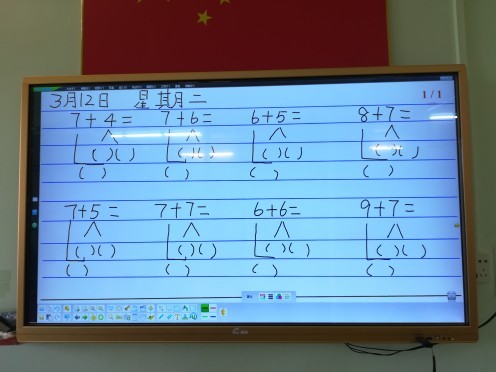 3月12日 星期二
1/1
7+4= 7+6= 6+5= 8+7=
( )( ) ( )( ) ( )( ) ( )( )
( ) ( ) ( ) ( )
7+5= 7+7= 6+6= 9+7=
( )( ) ( )( ) ( )( ) ( )( )
( ) ( ) ( ) ( )